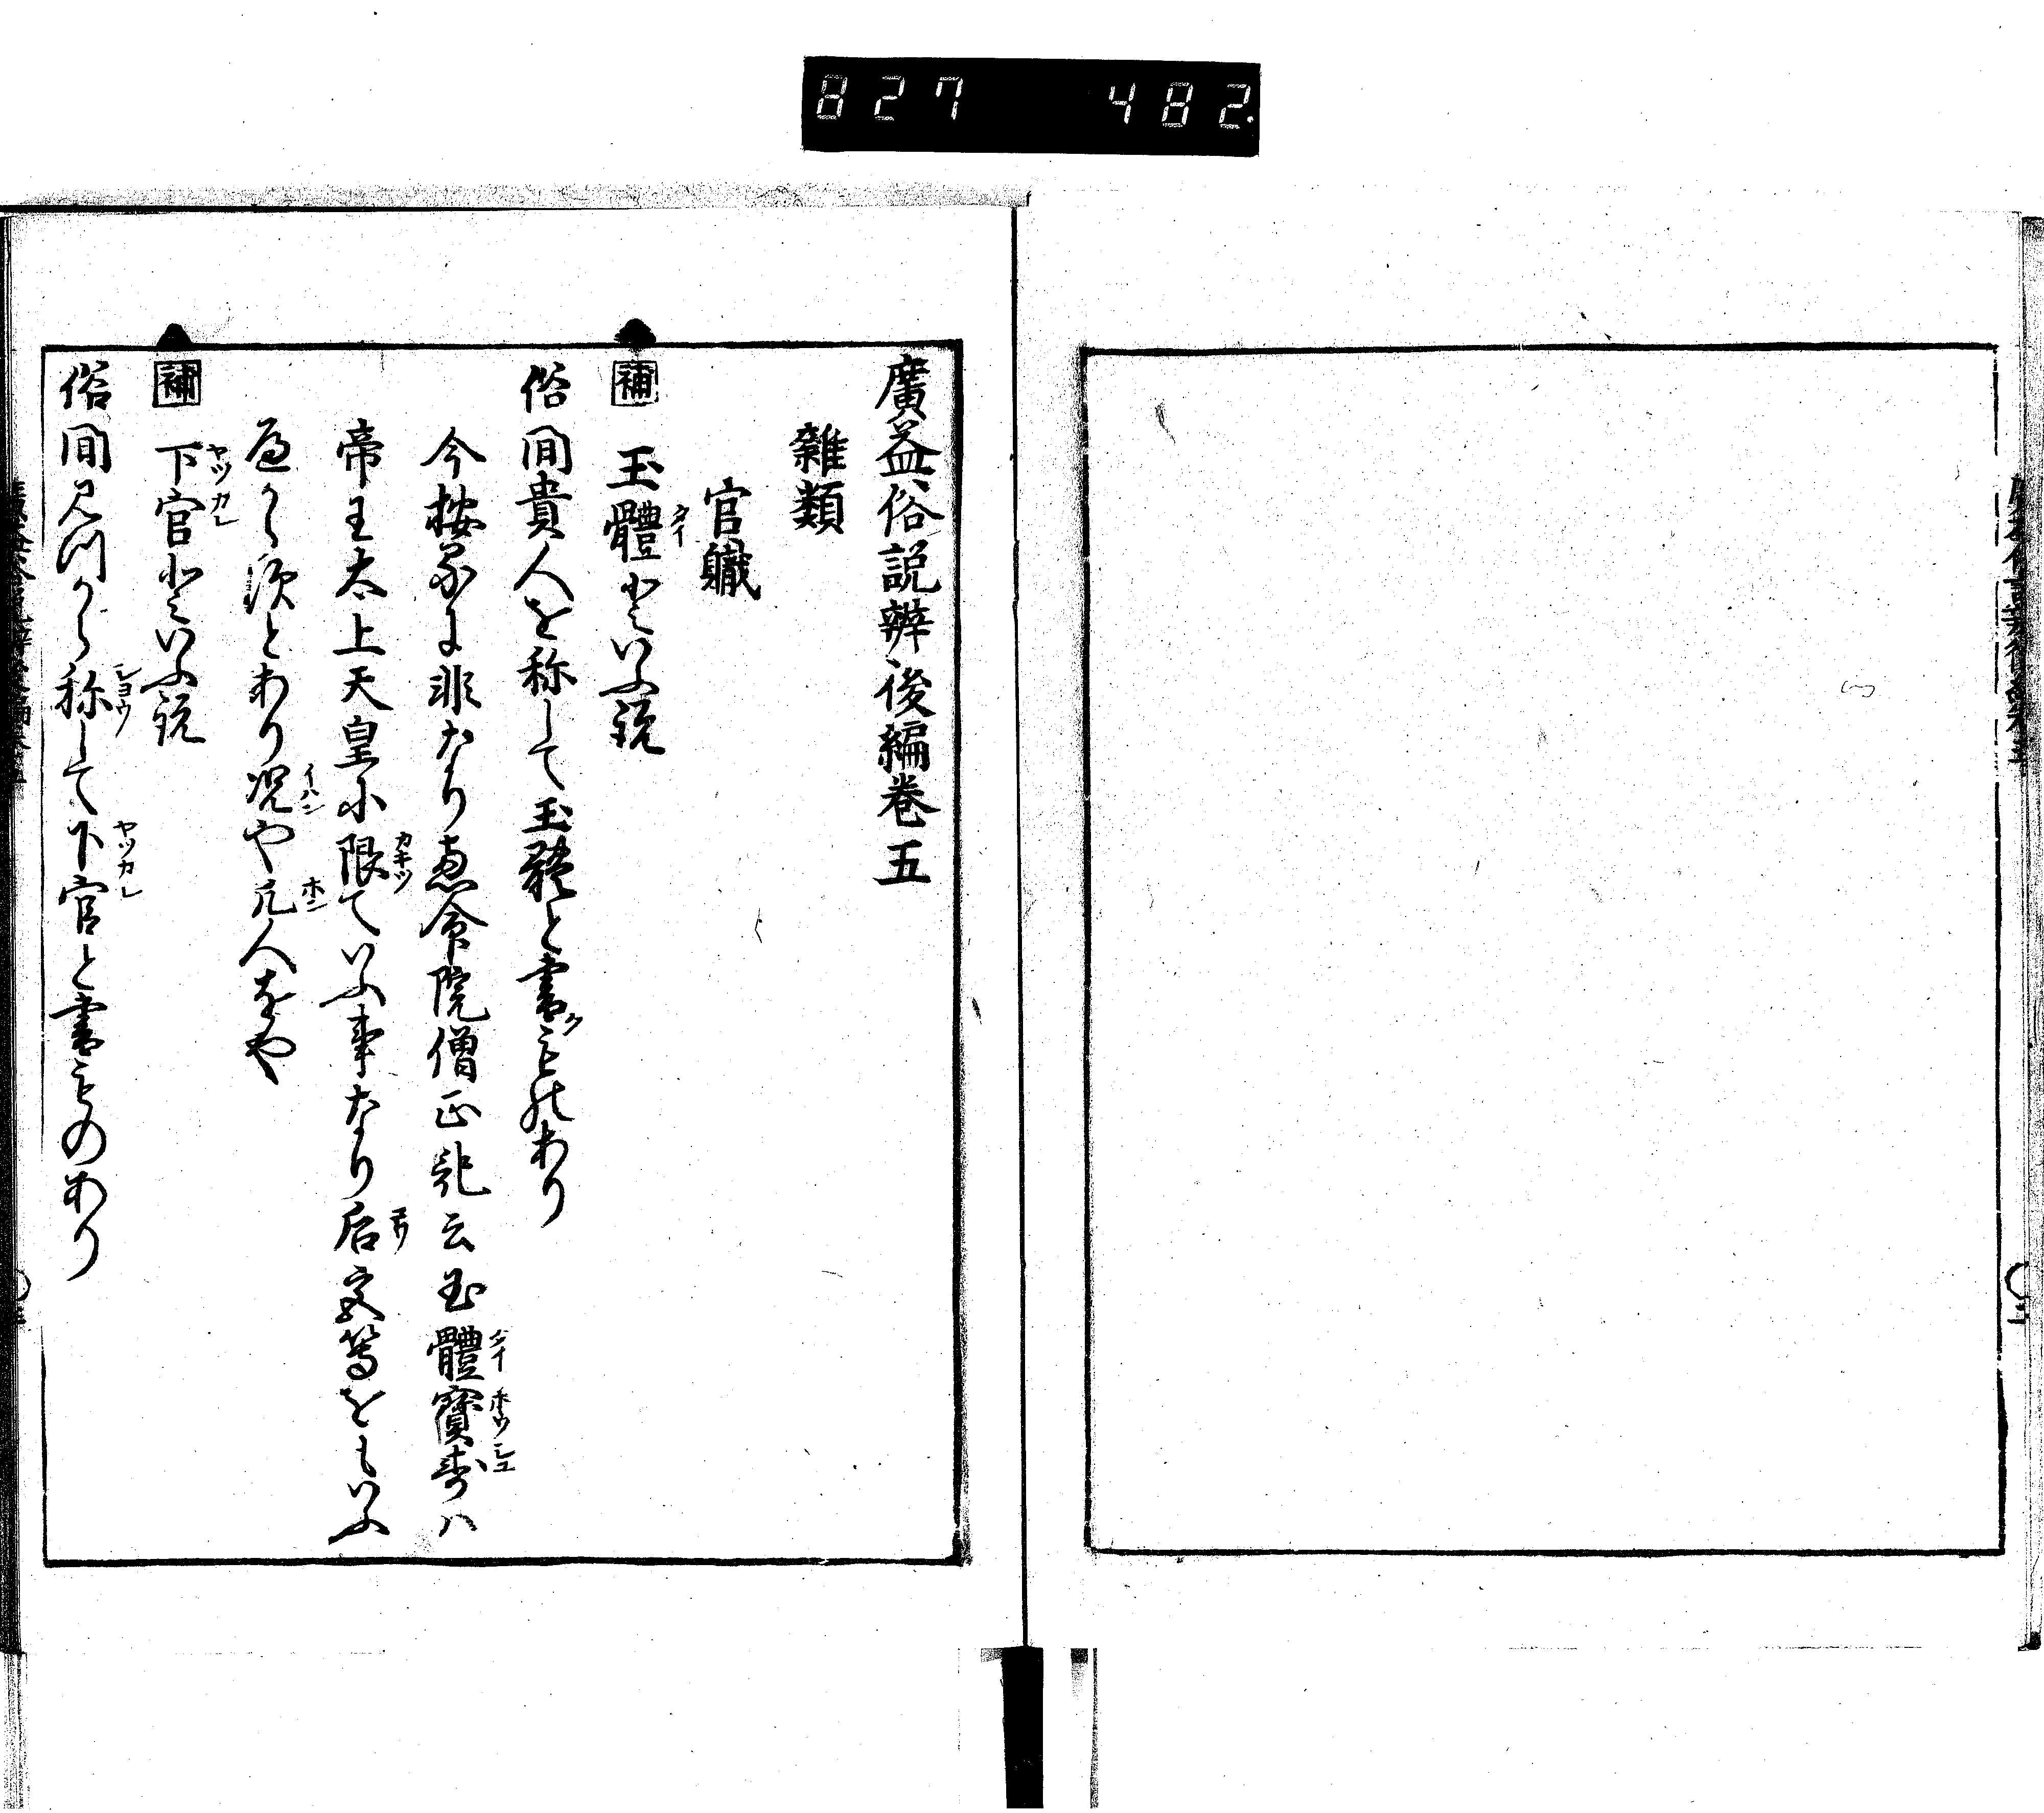 827 482
廣益俗説辨後編巻五
雜類
官職
補 玉體といふ説
俗間貴人を称して玉體と書ものあり
今按るに非なり恵命院僧正記云玉體寶寿ハ
帝王太上天皇に限ていふ事なり后宮等をもいふ
へからすとあり况や凡人をや
補 下官といふ説
俗間みつから称して下官と書ものあり